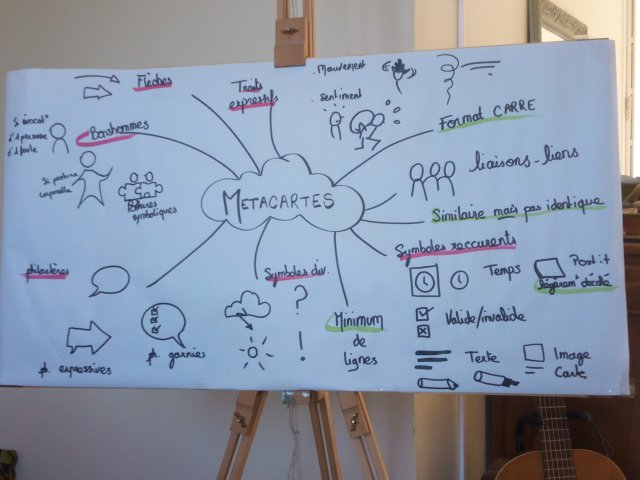 Flèches
Traits
expressifs
. Mouvement
. Sentiment
Format CARRE
Si évocat°
d'1 personne
d'1 foule
Bonshommes
Si posture
corporelle
Postures
symboliques
METACARTES
liaisons-liens
Similaire mais pas identique
Symboles reccurents
Temps
Post:it
légèrem^t décollé
Valide/invalide
Texte
Image
Carte
philactères
ph. expressives
ph. garnies
Symboles div.
?
!
Minimum
de
lignes